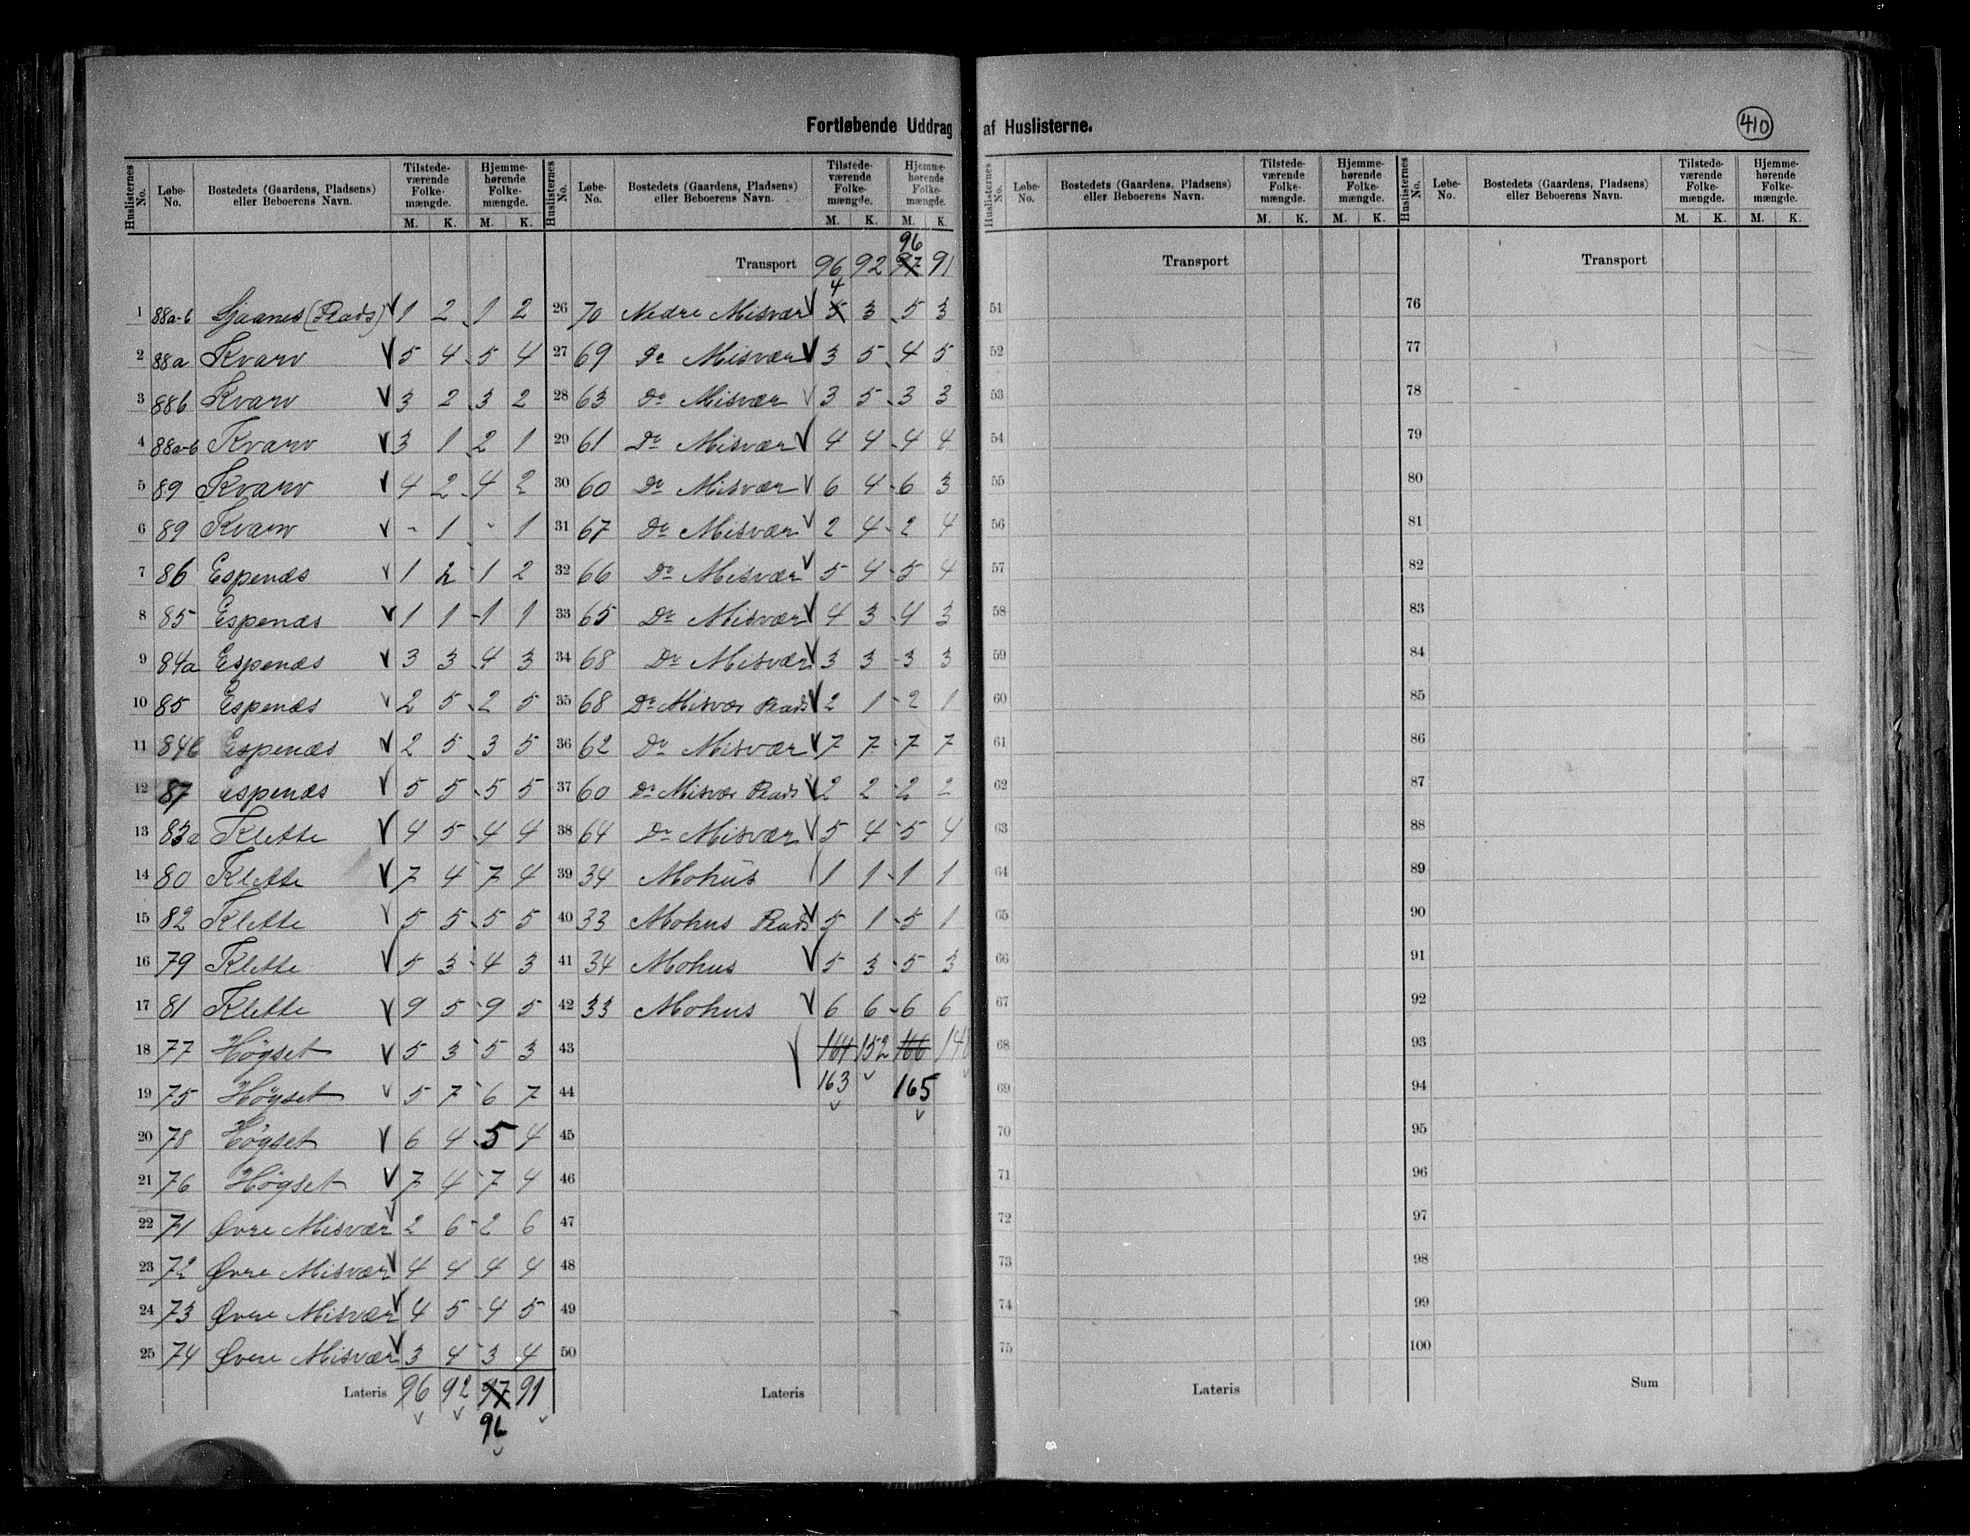 Fortløbende Uddrag af Huslisterne.
410
Huslisternes No. Løbe-No. Bostedets (Gaardens, Pladsens) eller Beboerens Navn. Tilstede-værende Folke-mængde. M. K. Hjemme-hørende Folke-mængde. M. K.
1 88a-b (Plads) 1 2 1 2
2 88a Kvarv 5 4 5 4
3 88b Kvarv 3 2 3 2
4 88a-b Kvarv 3 1 2 1
5 89 Kvarv 4 2 4 2
6 89 Kvarv - 1 - 1
7 86 Espenæs 1 2 1 2
8 85 Espenæs 1 1 1 1
9 84a Espenæs 3 3 4 3
10 85 Espenæs 2 5 2 5
11 84b Espenæs 2 5 3 5
12 87 Espenæs 5 5 5 5
13 83a Klette 4 5 4 4
14 80 Klette 7 4 7 4
15 82 Klette 5 5 5 5
16 79 Klette 5 3 4 3
17 81 Klette 9 5 9 5
18 77 Høgset 5 3 5 3
19 75 Høgset 5 7 6 7
20 78 Høgset 6 4 5 4
21 76 Høgset 7 4 7 4
22 71 Øvre Misvær 2 6 2 6
23 72 Øvre Misvær 4 4 4 4
24 73 Øvre Misvær 4 5 4 5
25 74 Øvre Misvær 3 4 3 4
Lateris 96 92 97 91
96
Huslisternes No. Løbe-No. Bostedets (Gaardens, Pladsens) eller Beboerens Navn. Tilstede-værende Folke-mængde. M. K. Hjemme-hørende Folke-mængde. M. K.
96
Transport 96 92 97 91
4
26 70 Nedre Misvær 5 3 5 3
27 69 Do Misvær 3 5 4 5
28 63 Do Misvær 3 5 3 3
29 61 Do Misvær 4 4 4 4
30 60 Do Misvær 6 4 6 3
31 67 Do Misvær 2 4 2 4
32 66 Do Misvær 5 4 5 4
33 65 Do Misvær 4 3 4 3
34 68 Do Misvær 3 3 3 3
35 68 Do Misvær Plads 2 1 2 1
36 62 Do Misvær 7 7 7 7
37 60 Do Misvær Plads 2 2 2 2
38 64 Do Misvær 5 4 5 4
39 34 Mohus 1 1 1 1
40 33 Mohus Plads 5 1 5 1
41 34 Mohus 5 3 5 3
42 33 Mohus 6 6 6 6
43 164 152 166
44 163 165
45
46
47
48
49
50
Lateris
Huslisternes No. Løbe-No. Bostedets (Gaardens, Pladsens) eller Beboerens Navn. Tilstede-værende Folke-mængde. M. K. Hjemme-hørende Folke-mængde. M. K.
Transport
51
52
53
54
55
56
57
58
59
60
61
62
63
64
65
66
67
68
69
70
71
72
73
74
75
Lateris
Huslisternes No. Løbe-No. Bostedets (Gaardens, Pladsens) eller Beboerens Navn. Tilstede-værende Folke-mængde. M. K. Hjemme-hørende Folke-mængde. M. K.
Transport
76
77
78
79
80
81
82
83
84
85
86
87
88
89
90
91
92
93
94
95
96
97
98
99
100
Sum